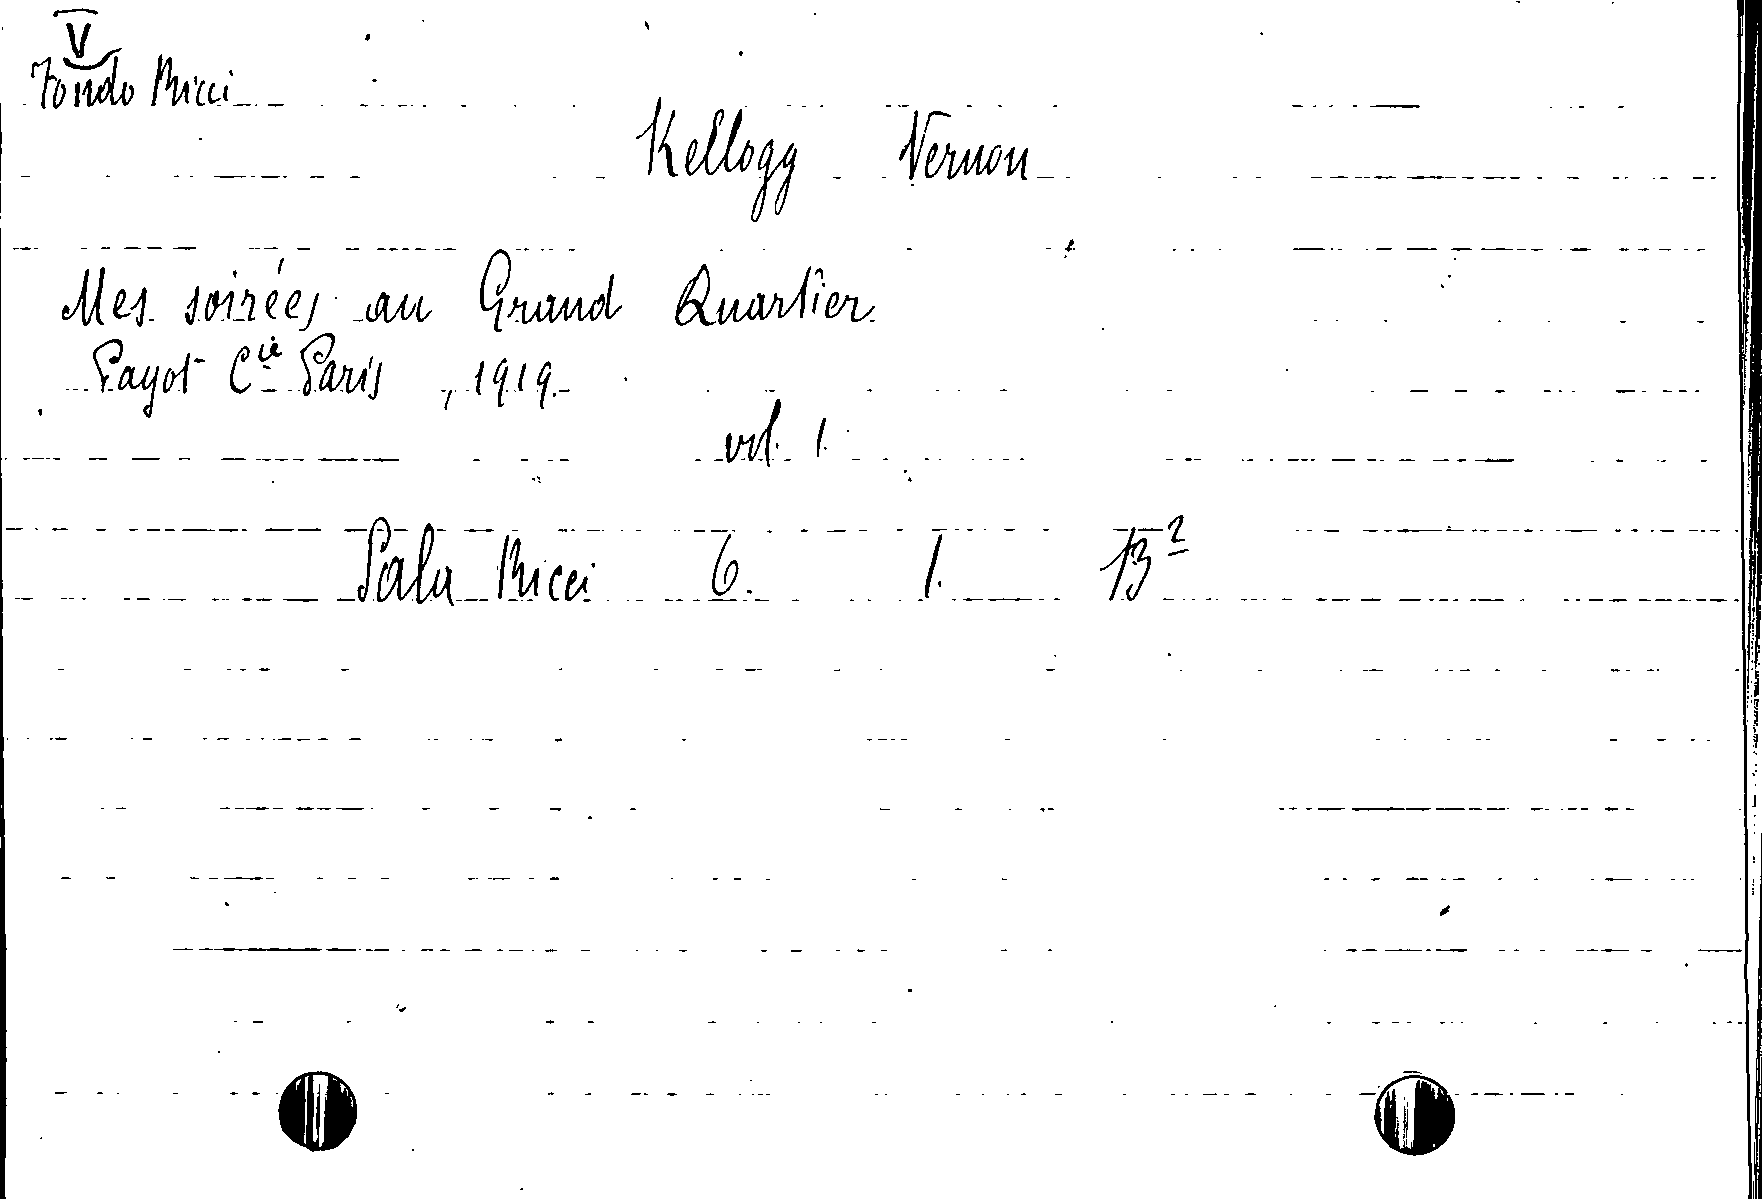 V
Fondo Ricci
Kellogg Vernon
Mes soirées au Grand Quartier
Payot Cie Paris, 1919.
vol. 1.
Sala Ricci 6. 1. 13²